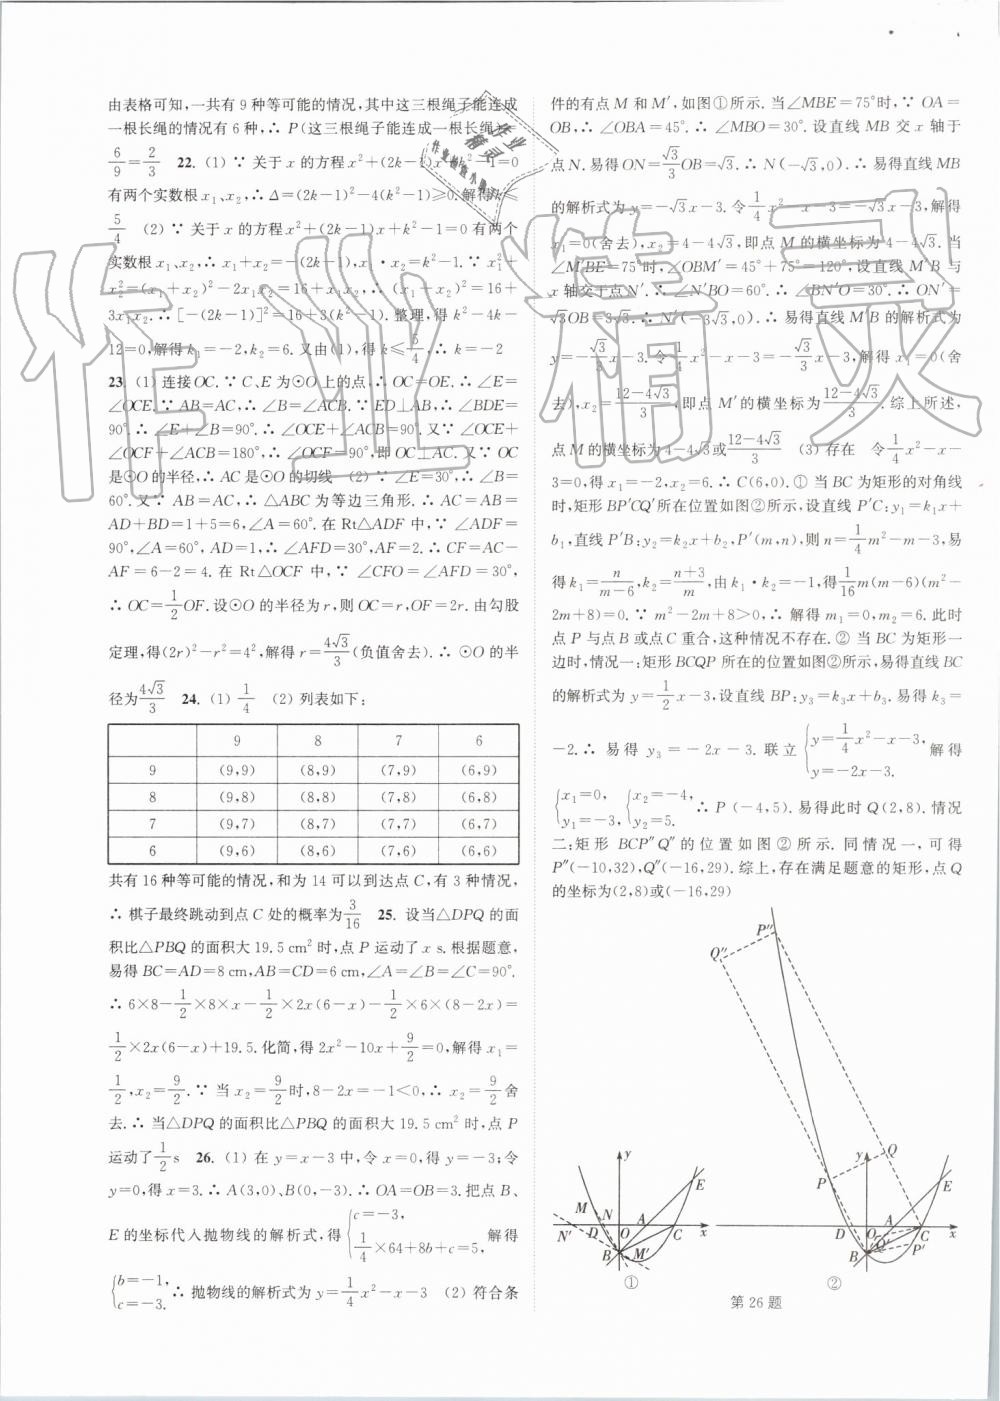 由表格可知,一共有9种等可能的情况,其中这三根绳子能连成
一根长绳的情况有6种,∴ P(这三根绳子能连成一根长绳)=
6/9=2/3 22. (1) ∵ 关于x的方程x²+(2k-1)x+k²-1=0
有两个实数根x₁、x₂,∴ Δ=(2k-1)²-4(k²-1)≥0.解得k≤
5/4 (2) ∵ 关于x的方程x²+(2k-1)x+k²-1=0有两个
实数根x₁、x₂,∴ x₁+x₂=-(2k-1),x₁·x₂=k²-1.∵ x₁²+
x₂²=(x₁+x₂)²-2x₁x₂=16+x₁x₂,∴ (x₁+x₂)²=16+
3x₁x₂.∴ [-(2k-1)]²=16+3(k²-1).整理,得k²-4k-
12=0,解得k₁=-2,k₂=6.又由(1),得k≤5/4,∴ k=-2
23. (1) 连接OC.∵ C、E为⊙O上的点,∴ OC=OE.∴ ∠E=
∠OCE.∵ AB=AC,∴ ∠B=∠ACB.∵ ED⊥AB,∴ ∠BDE=
90°.∴ ∠E+∠B=90°.∴ ∠OCE+∠ACB=90°.又∵ ∠OCE+
∠OCF+∠ACB=180°,∴ ∠OCF=90°,即OC⊥AC.又∵ OC
是⊙O的半径,∴ AC是⊙O的切线 (2) ∵ ∠E=30°,∴ ∠B=
60°.又∵ AB=AC,∴ △ABC为等边三角形.∴ AC=AB=
AD+BD=1+5=6,∠A=60°.在Rt△ADF中,∵ ∠ADF=
90°,∠A=60°, AD=1,∴ ∠AFD=30°,AF=2.∴ CF=AC-
AF=6-2=4.在Rt△OCF中,∵ ∠CFO=∠AFD=30°,
∴ OC=1/2OF.设⊙O的半径为r,则OC=r,OF=2r.由勾股
定理,得(2r)²-r²=4²,解得r=4√3/3(负值舍去).∴ ⊙O的半
径为4√3/3 24. (1) 1/4 (2) 列表如下:
9 8 7 6
9 (9,9) (8,9) (7,9) (6,9)
8 (9,8) (8,8) (7,8) (6,8)
7 (9,7) (8,7) (7,7) (6,7)
6 (9,6) (8,6) (7,6) (6,6)
共有16种等可能的情况,和为14可以到达点C,有3种情况,
∴ 棋子最终跳动到点C处的概率为3/16 25. 设当△DPQ的面
积比△PBQ的面积大19.5 cm²时,点P运动了x s.根据题意,
易得BC=AD=8 cm,AB=CD=6 cm,∠A=∠B=∠C=90°.
∴ 6×8-1/2×8×x-1/2×2x(6-x)-1/2×6×(8-2x)=
1/2×2x(6-x)+19.5.化简,得2x²-10x+9/2=0,解得x₁=
1/2,x₂=9/2.∵ 当x₂=9/2时,8-2x=-1<0,∴ x₂=9/2舍
去.∴ 当△DPQ的面积比△PBQ的面积大19.5 cm²时,点P
运动了1/2 s 26. (1) 在y=x-3中,令x=0,得y=-3;令
y=0,得x=3.∴ A(3,0)、B(0,-3).∴ OA=OB=3.把点B、
E的坐标代入抛物线的解析式,得{c=-3, 1/4×64+8b+c=5, 解得
{b=-1, c=-3. ∴ 抛物线的解析式为y=1/4x²-x-3 (2) 符合条
件的有点M和M′,如图①所示.当∠MBE=75°时,∵ OA=
OB,∴ ∠OBA=45°.∴ ∠MBO=30°.设直线MB交x轴于
点N.易得ON=√3/3OB=√3.∴ N(-√3,0).∴ 易得直线MB
的解析式为y=-√3x-3.令1/4x²-x-3=-√3x-3,解得
x₁=0(舍去),x₂=4-4√3,即点M的横坐标为4-4√3.当
∠M′BE=75°时,∠OBM′=45°+75°=120°,设直线M′B与
x轴交于点N′.∴ ∠N′BO=60°.∴ ∠BN′O=30°.∴ ON′=
√3OB=3√3.∴ N′(-3√3,0).∴ 易得直线M′B的解析式为
y=-√3/3x-3.令1/4x²-x-3=-√3/3x-3,解得x₁=0(舍
去),x₂=12-4√3/3,即点M′的横坐标为12-4√3/3.综上所述,
点M的横坐标为4-4√3或12-4√3/3 (3) 存在 令1/4x²-x-
3=0,得x₁=-2,x₂=6.∴ C(6,0).① 当BC为矩形的对角线
时,矩形BP′CQ′所在位置如图②所示,设直线P′C:y₁=k₁x+
b₁,直线P′B:y₂=k₂x+b₂,P′(m,n),则n=1/4m²-m-3,易
得k₁=n/m-6,k₂=n+3/m,由k₁·k₂=-1,得1/16m(m-6)(m²-
2m+8)=0.∵ m²-2m+8>0,∴ 解得m₁=0,m₂=6.此时
点P与点B或点C重合,这种情况不存在.② 当BC为矩形一
边时,情况一:矩形BCQP所在的位置如图②所示,易得直线BC
的解析式为y=1/2x-3,设直线BP:y₃=k₃x+b₃.易得k₃=
-2.∴ 易得y₃=-2x-3.联立{y=1/4x²-x-3, y=-2x-3. 解得
{x₁=0, y₁=-3, {x₂=-4, y₂=5. ∴ P(-4,5).易得此时Q(2,8).情况
二:矩形BCP″Q″的位置如图②所示.同情况一,可得
P″(-10,32),Q″(-16,29).综上,存在满足题意的矩形,点Q
的坐标为(2,8)或(-16,29)
y E M N N′ D O A C x B M′
①
P″ Q″ y Q E P D O A C x B Q′ P′
②
第26题
作业精灵